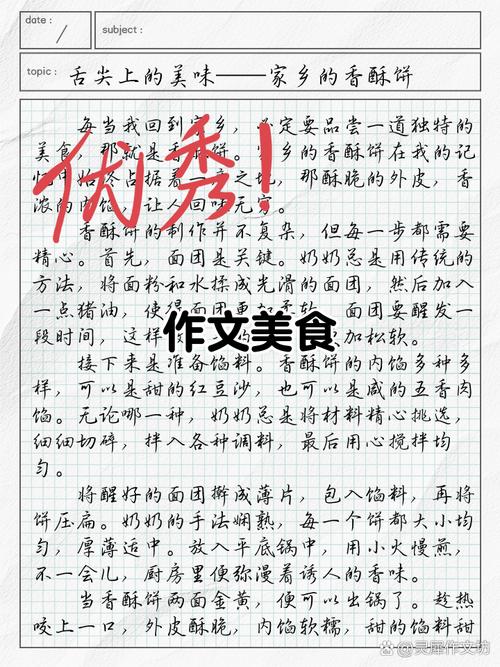 date:
subject:
topic: 舌尖上的美味——家乡的香酥饼
每当我回到家乡，必定要品尝一道独特的
美食，那就是香酥饼。家乡的香酥饼在我的记
忆中始终占据着一席之地，那酥脆的外皮，香
浓的内馅，让人回味无穷。
优秀！
香酥饼的制作并不复杂，但每一步都需要
精心。首先，面团是关键。奶奶总是用传统的
方法，将面粉和水揉成光滑的面团，然后加入
一点猪油，使得面团更加柔软。面团要醒发一
段时间，这样 加松软。
作文美食
接下来是准备馅料。香酥饼的内馅多种多
样，可以是甜的红豆沙，也可以是咸的五香肉
馅。无论哪一种，奶奶总是将材料精心挑选，
细细切碎，拌入各种调料，最后用心搅拌均
匀。
将醒好的面团擀成薄片，包入馅料，再将
饼压扁。奶奶的手法娴熟，每一个饼都大小均
匀，厚薄适中。放入平底锅中，用小火慢煎，
不一会儿，厨房里便弥漫着诱人的香味。
当香酥饼两面金黄，便可以出锅了。趁热
咬上一口，外皮酥脆，内馅软糯，甜的馅料甜
@灵犀作文坊